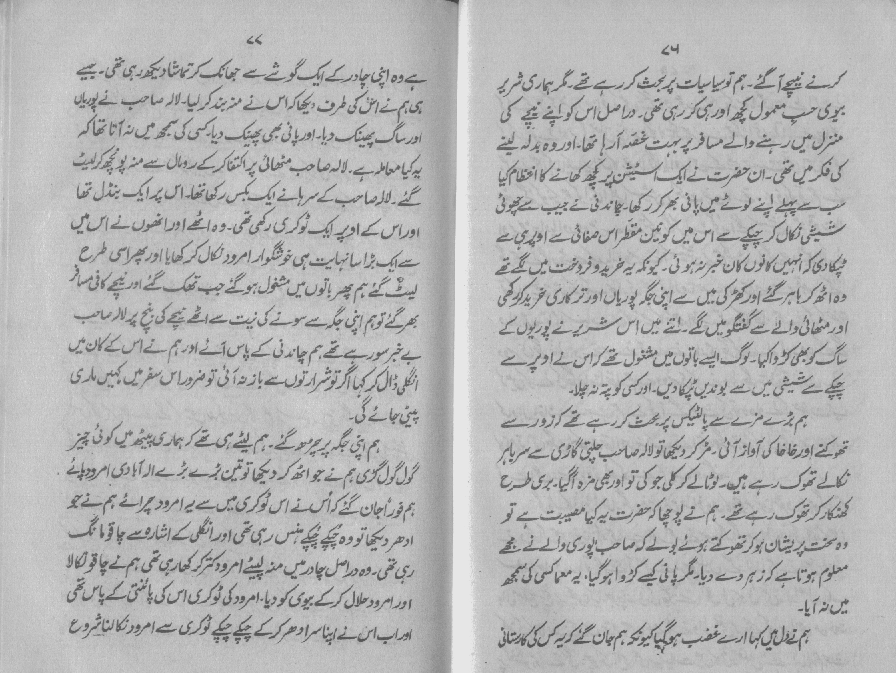 ۷۶
کرنے نیچے آ گئے۔ ہم تو سیاسیات پر بحث کر رہے تھے۔ مگر ہماری شریر
بیوی حسبِ معمول کچھ اور ہی کر رہی تھی۔ دراصل اس کو اپنے نیچے کی
منزل میں رہنے والے مسافر پر بہت غصّہ آ رہا تھا۔ اور وہ بدلہ لینے
کی فکر میں تھی۔ ان حضرت نے ایک اسٹیشن پر کچھ کھانے کا انتظام کیا
سب سے پہلے اپنے لوٹے میں پانی بھر کر رکھا۔ چاندنی نے جیب سے چھوٹی
شیشی نکال کر چپکے سے اس میں کونین مقطر اس صفائی سے اوپر ہی سے
ٹپکا دی کہ انہیں کانوں کان خبر نہ ہوئی۔ کیونکہ یہ خرید و فروخت میں لگے تھے
وہ اٹھ کر باہر گئے اور کھڑکی میں سے اپنی جگہ پوریاں اور ترکاری خرید کر رکھی
اور مٹھائی والے سے گفتگو میں لگے۔ اتنے میں اس شریر نے پوریوں کے
ساگ کو بھی کڑوا کیا۔ لوگ ایسے باتوں میں مشغول تھے کہ اس نے اوپر سے
چپکے سے شیشی میں سے بوندیں ٹپکا دیں۔ اور کسی کو پتہ نہ چلا۔
ہم بڑے مزے سے پالٹیکس پر بحث کر رہے تھے کہ زور سے
تھوکنے اور خاخا کی آواز آئی۔ مڑ کر دیکھا تو لالہ صاحب چلتی گاڑی سے سر باہر
نکالے تھوک رہے ہیں۔ لوٹا لے کر کلی جو کی تو اور بھی مزہ آ گیا۔ بری طرح
کھنکار کر تھوک رہے تھے۔ ہم نے پوچھا کہ حضرت یہ کیا مصیبت ہے تو
وہ سخت پریشان ہو کر تھوکتے ہوئے بولے کہ صاحب پوری والے نے مجھے
معلوم ہوتا ہے کہ زہر دے دیا۔ مگر پانی کیسے کڑوا ہو گیا، یہ معما کسی کی سمجھ
میں نہ آیا۔
ہم نے دل میں کہا ارے غضب ہو گیا کیونکہ ہم جان گئے کہ یہ کس کی کارستانی
۷۷
ہے وہ اپنی چادر کے ایک گوشے سے جھانک کر تماشا دیکھ رہی تھی۔ جیسے
ہی ہم نے اس کی طرف دیکھا کہ اس نے منہ بند کر لیا۔ لالہ صاحب نے پوریاں
اور ساگ پھینک دیا۔ اور پانی بھی پھینک دیا۔ کسی کی سمجھ میں نہ آتا تھا کہ
یہ کیا معاملہ ہے۔ لالہ صاحب مٹھائی پر اکتفا کر کے رومال سے منہ پونچھ کر لیٹ
گئے۔ لالہ صاحب کے سرہانے ایک بکس رکھا تھا۔ اس پر ایک بنڈل تھا
اور اس کے اوپر ایک ٹوکری رکھی تھی۔ وہ اٹھے اور انھوں نے اس میں
سے ایک بڑا سا نہایت ہی خوشگوار امرود نکال کر کھایا اور پھر اسی طرح
لیٹ گئے ہم پھر باتوں میں مشغول ہو گئے جب تھک گئے اور نیچے کافی مسافر
بھر گئے تو ہم اپنی جگہ سے سونے کی نیت سے اٹھے نیچے کی بنچ پر لالہ صاحب
بے خبر سو رہے تھے۔ ہم چاندنی کے پاس آئے اور ہم نے اس کے کان میں
انگلی ڈال کر کہا اگر تو شرارتوں سے باز نہ آئی تو ضرور اس سفر میں کہیں ماری
پیٹی جائے گی۔
ہم اپنی جگہ پر چڑھ گئے۔ ہم لیٹے ہی تھے کہ ہماری پیٹھ میں کوئی چیز
گول گول گڑی ہم نے جو اٹھ کر دیکھا تو تین بڑے بڑے الہ آبادی امرود پائے
ہم فوراً جان گئے کہ اُس نے اس ٹوکری میں سے یہ امرود چرائے ہم نے جو
ادھر دیکھا تو وہ چپکے چپکے ہنس رہی تھی اور انگلی کے اشارہ سے چاقو مانگ
رہی تھی۔ وہ دراصل چادر میں منہ لپیٹے امرود کتر کر کھا رہی تھی ہم نے چاقو نکالا
اور امرود حلال کر کے بیوی کو دیا۔ امرود کی ٹوکری اس کی پائنتی کے پاس تھی
اور اب اس نے اپنا سر ادھر کر کے چپکے چپکے ٹوکری سے امرود نکالنا شروع